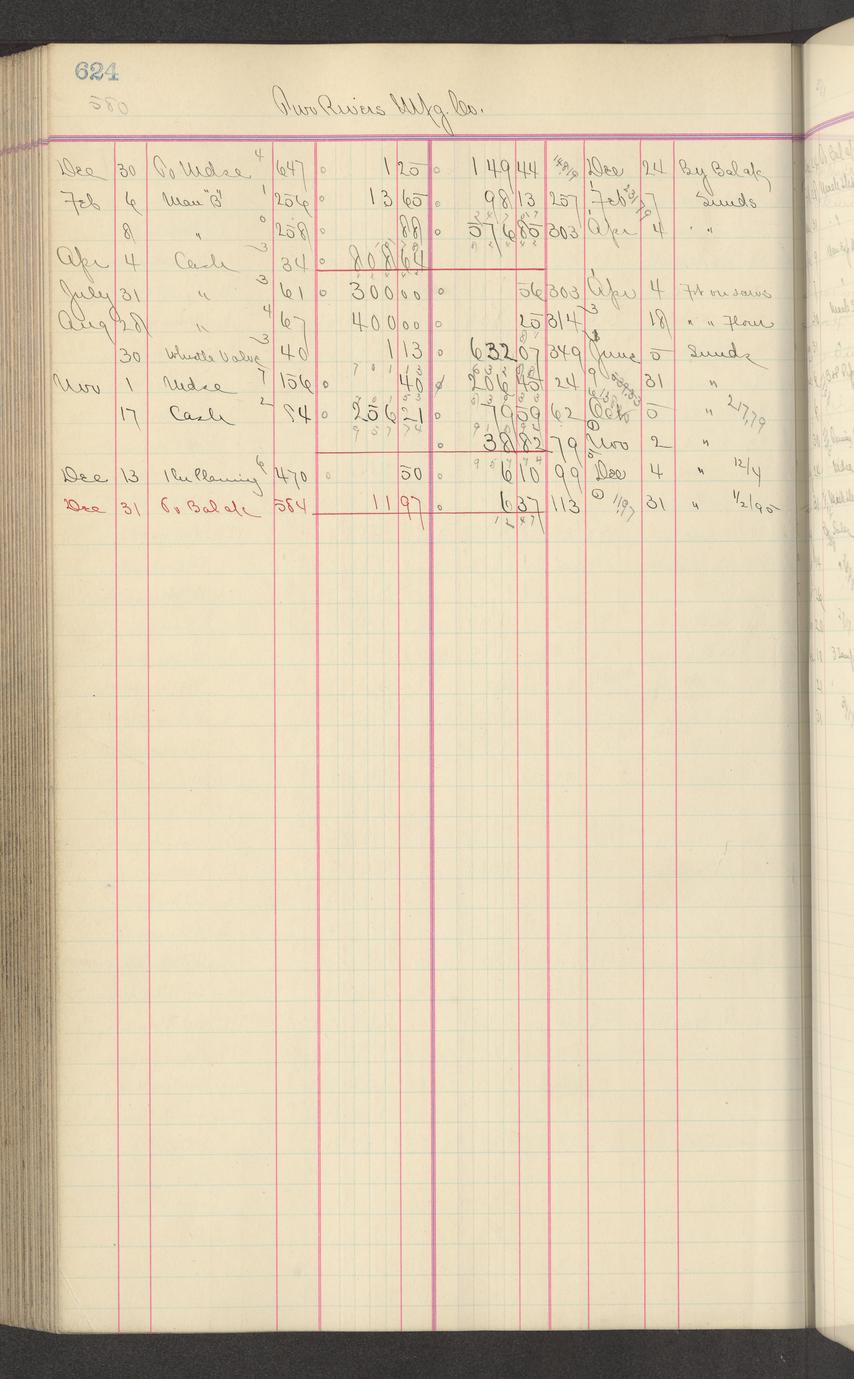 624
580
Two Rivers Mfg. Co.
Dec 30 To Mdse 4 647 1 25 149 44 Dec 24 By Balance
Feb 6 Man "B" 1 256 13 65 98 13 257 Feb 7 Sunds
8 " 0 258 88 576 85 303 Apr 4 " "
Apr 4 Cash 3 34 808 64
July 31 " 3 61 300 00 56 303 Apr 4 Frt on saws
Aug 28 " 4 67 400 00 25 314 18 " " Flour
30 Whistle Valve 3 40 1 13 632 07 349 June 5 Sunds
Nov 1 Mdse 7 156 40 206 45 24 31 "
17 Cash 2 84 256 21 79 59 62 Oct 5 " 217,79
38 82 79 Nov 2 "
Dec 13 Planing 6 470 50 6 10 99 Dec 4 " 12/4
Dec 31 To Balance 584 11 97 6 37 113 11,97 31 " 1/2/95
12 47